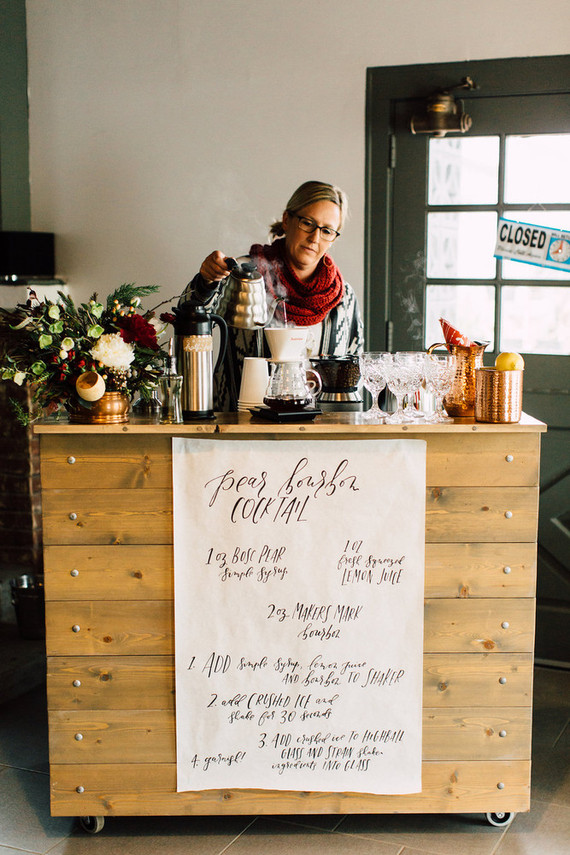 CLOSED
pear bourbon
COCKTAIL
1 oz BOSC PEAR
simple syrup
1 OZ
fresh squeezed
LEMON JUICE
2 oz MAKERS MARK
bourbon
1. ADD simple syrup, lemon juice
AND bourbon to SHAKER
2. add CRUSHED ICE and
shake for 30 seconds
3. ADD crushed ice to HIGHBALL
GLASS AND STRAIN shaken
ingredients INTO GLASS
4. garnish!